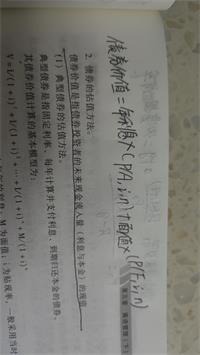 债券价值=年利息×(P/A,i,n)+面值×(P/F,i,n)
2. 债券的估值方法。
债券价值是指债券投资者的未来现金流入量（利息与本金）的现值
（1）典型债券的估值方法。
典型债券是指固定利率、每年计算并支付利息、到期归还本金的债券。
其债券价值计算的基本模型为：
V=I/(1+i)¹+I/(1+i)²+…+I/(1+i)ⁿ+M/(1+i)ⁿ
M为面值；i为贴现率，一般采用当时